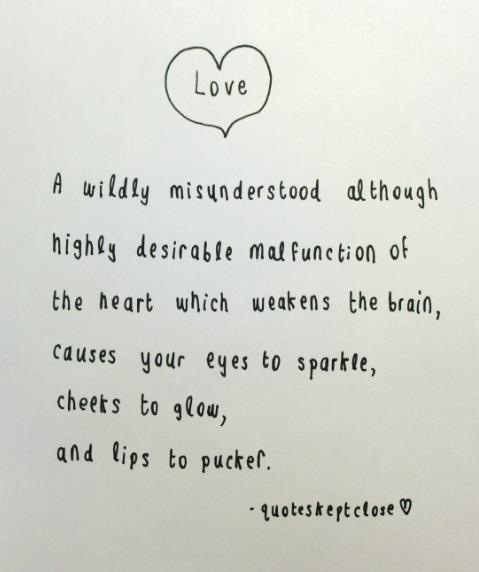 Love
A wildly misunderstood although
highly desirable malfunction of
the heart which weakens the brain,
causes your eyes to sparkle,
cheeks to glow,
and lips to pucker.
- quoteskeptclose♡